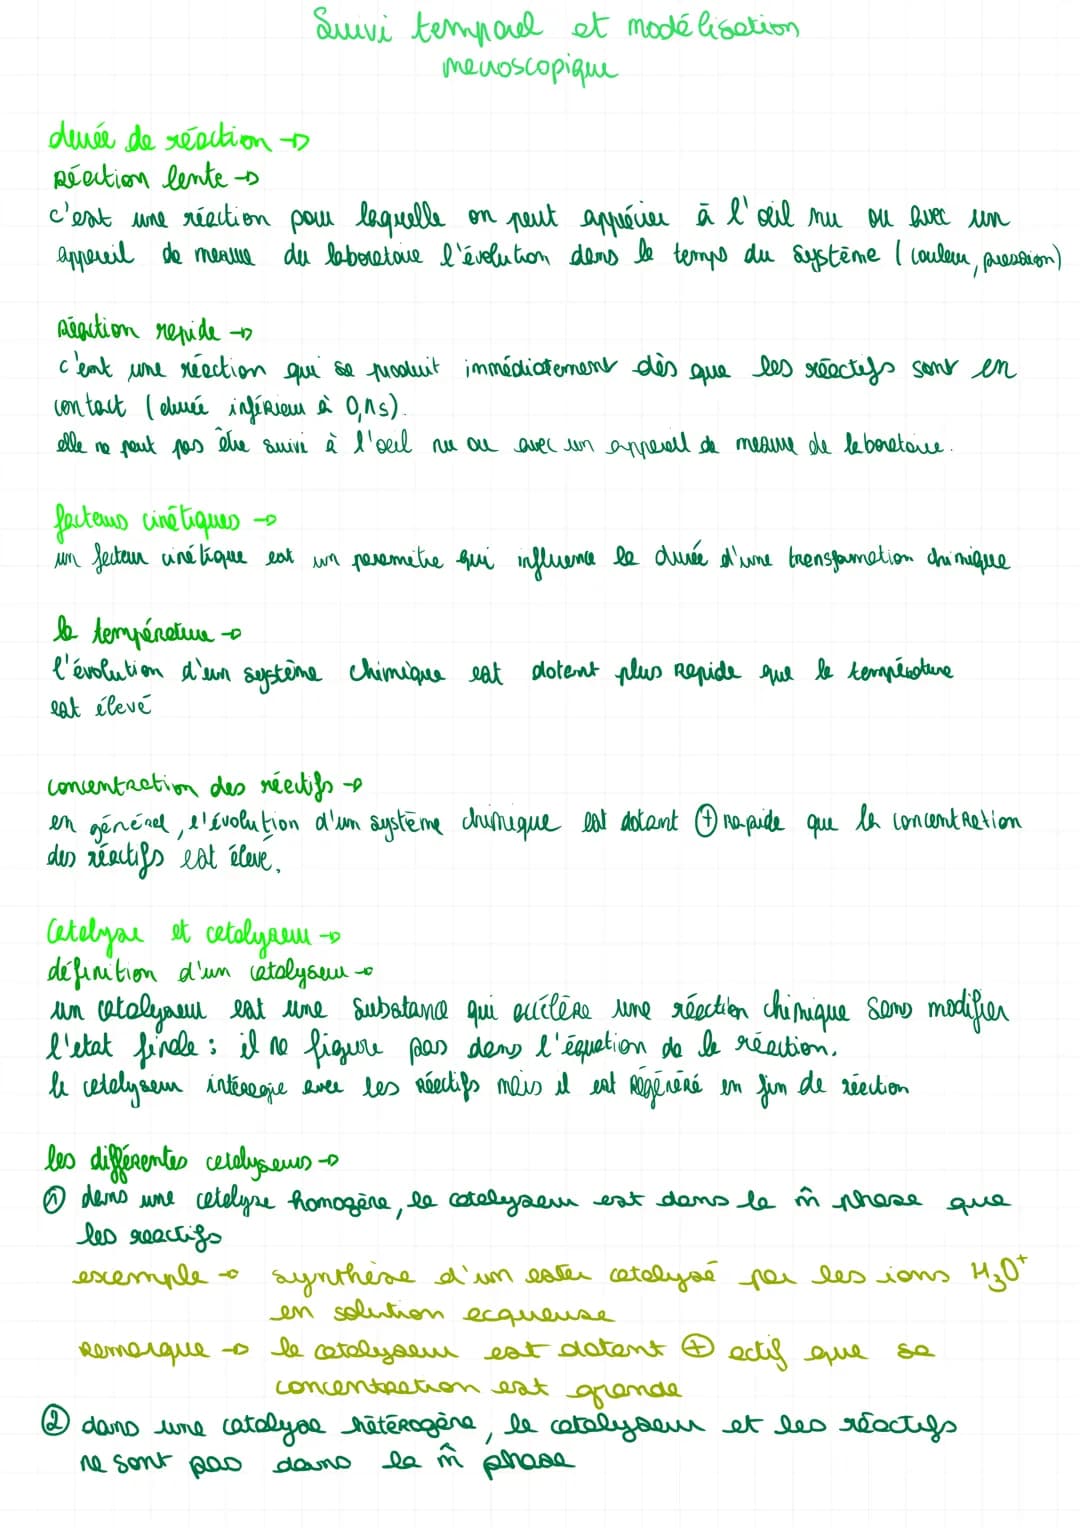 Suivi temporel et modélisation
macroscopique
durée de réaction →
Réaction lente →
c'est une réaction pour laquelle on peut apprécier à l'œil nu ou avec un
appareil de mesure du laboratoire l'évolution dans le temps du système (couleur, pression)
Réaction rapide →
c'est une réaction qui se produit immédiatement dès que les réactifs sont en
contact (durée inférieur à 0,1s).
elle ne peut pas être suivi à l'oeil nu ou avec un appareil de mesure de laboratoire.
facteurs cinétiques →
un facteur cinétique est un paramètre qui influence la durée d'une transformation chimique
la température →
l'évolution d'un système chimique est dotant plus rapide que la température
est élevé
concentration des réactifs →
en général, l'évolution d'un système chimique est dotant ⊕ rapide que la concentration
des réactifs est élevé.
Catalyse et catalyseur →
définition d'un catalyseur →
un catalyseur est une substance qui accélère une réaction chimique sans modifier
l'etat finale : il ne figure pas dans l'équation de la réaction.
le catalyseur interagie avec les réactifs mais il est Régénéré en fin de réaction
les différentes catalyseurs →
① dans une catalyse homogène, le catalyseur est dans la m̂ phase que
les reactifs
exemple → synthèse d'un ester catalysé par les ions H₃O⁺
en solution acqueuse
Remarque → le catalyseur est dotant ⊕ actif que sa
concentration est grande
② dans une catalyse hétérogène, le catalyseur et les réactifs
ne sont pas dans la m̂ phase